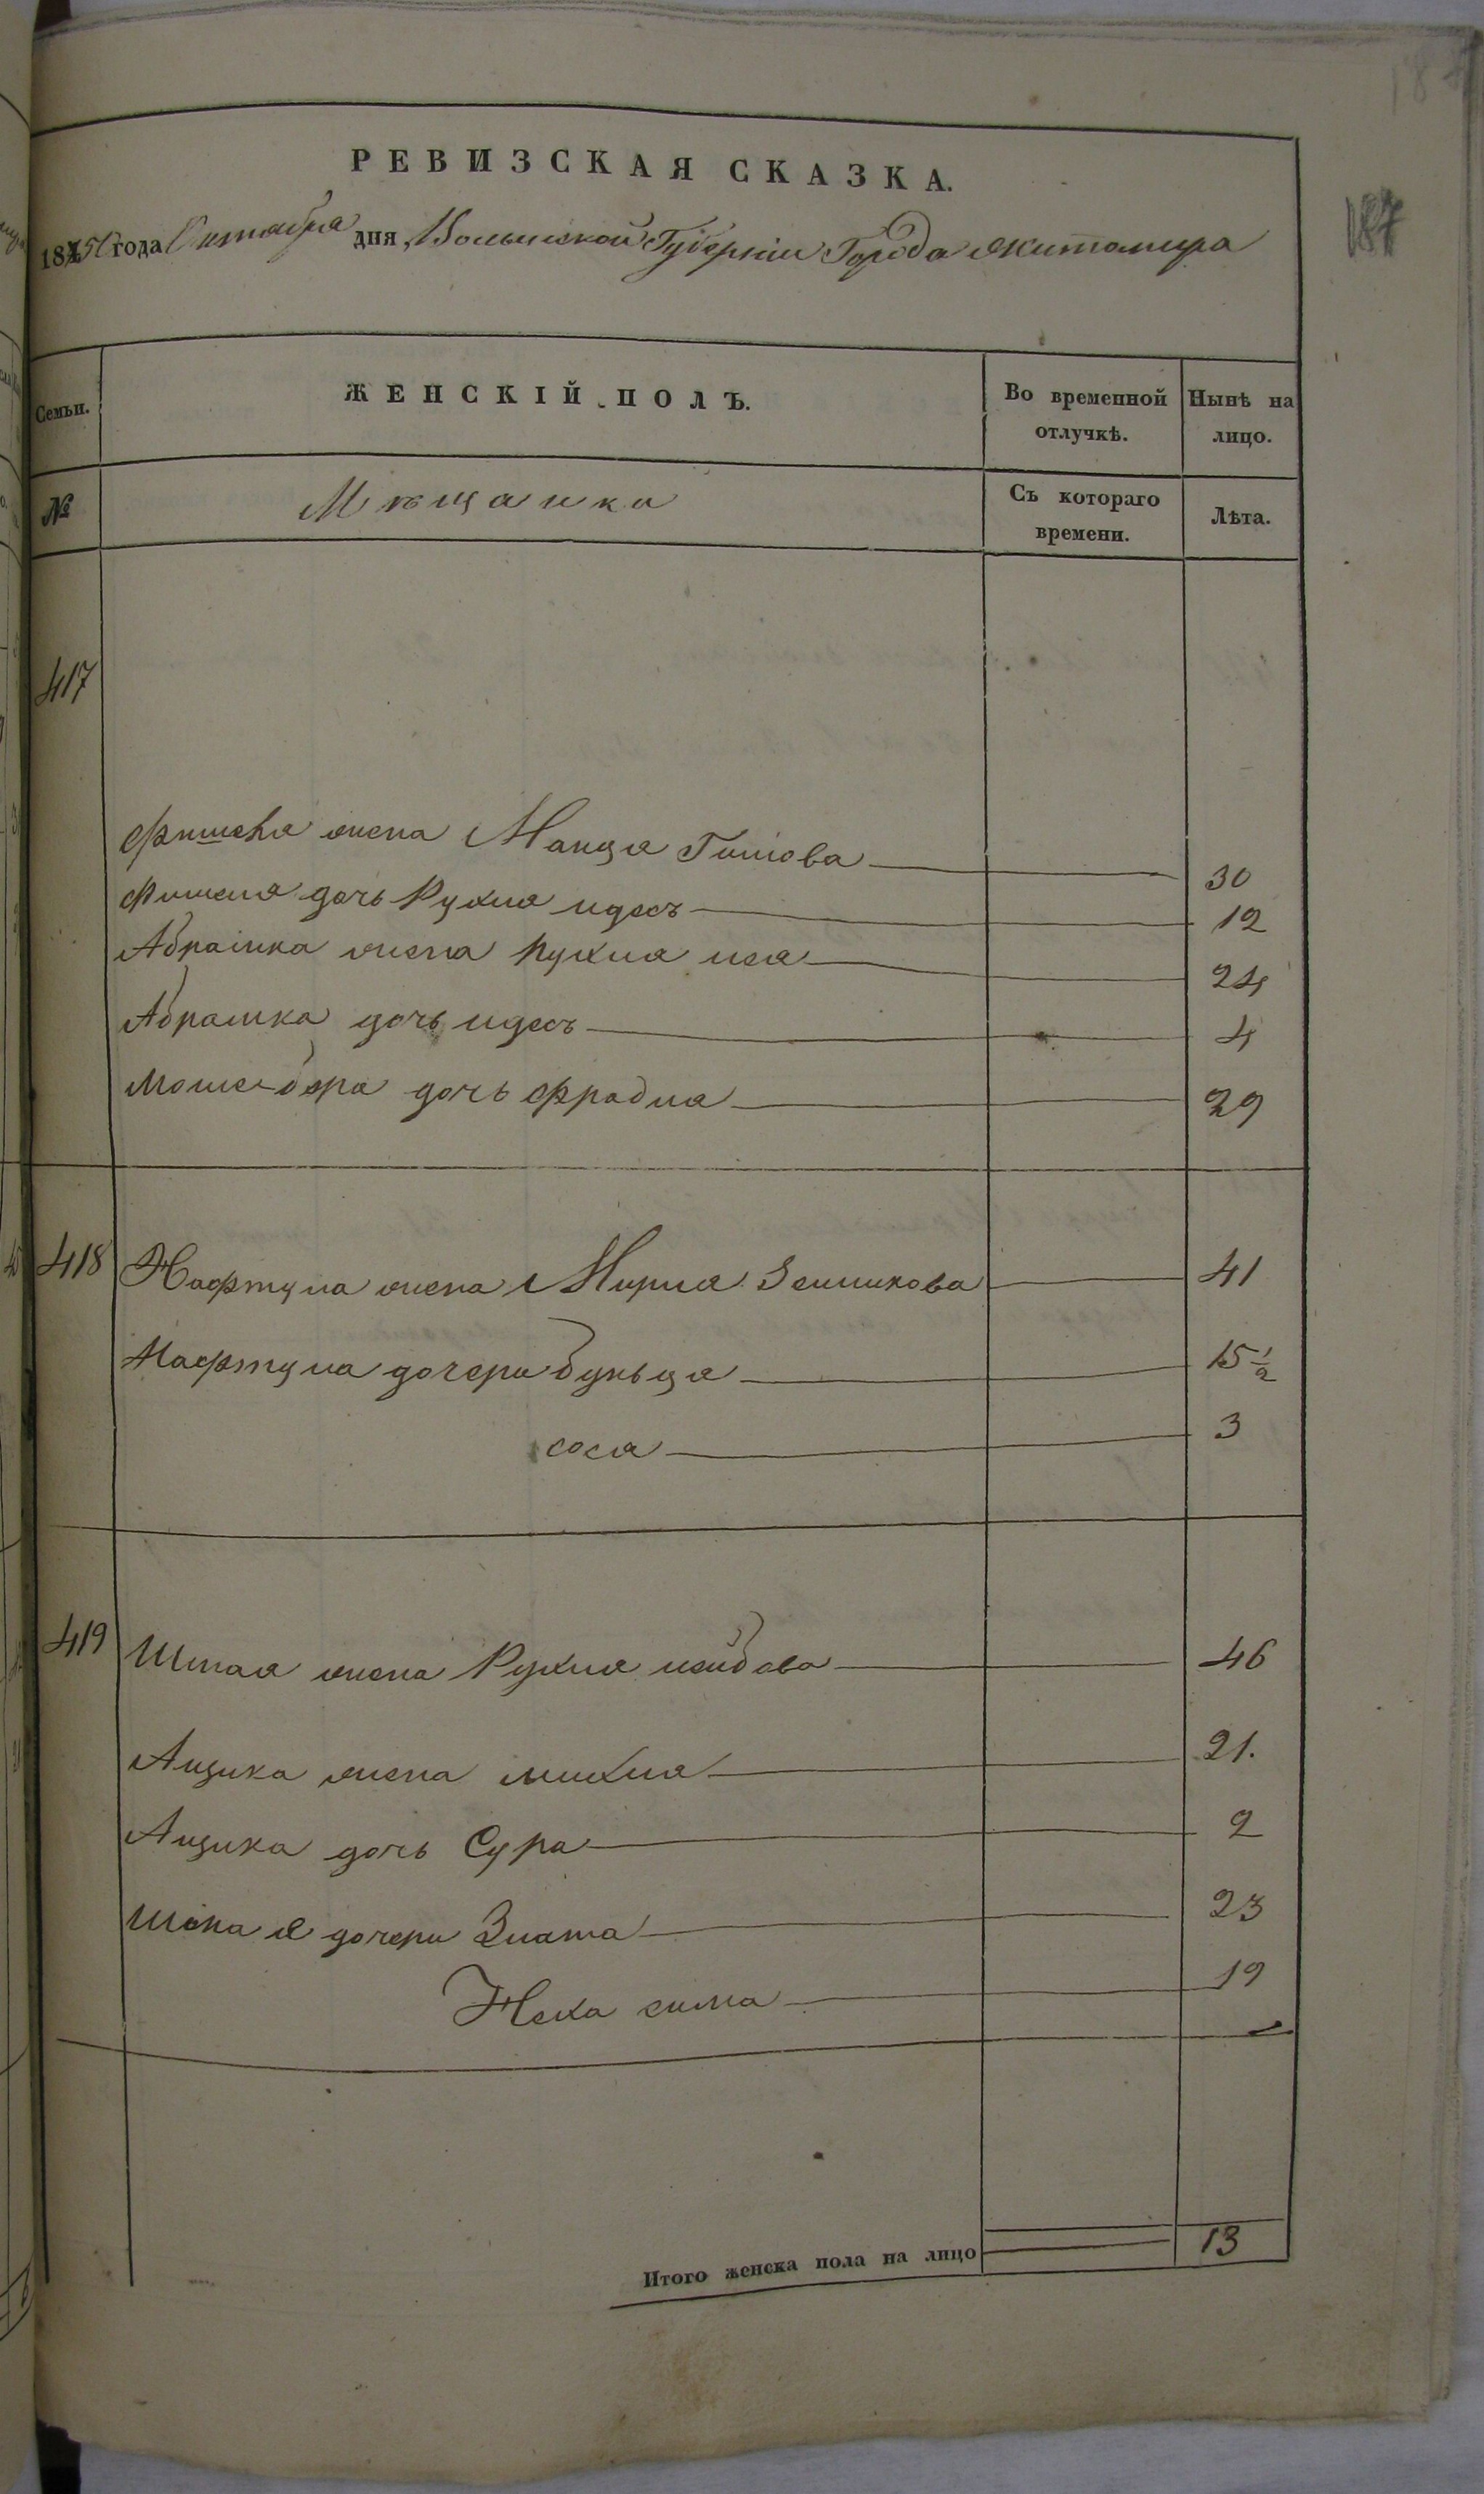 187
РЕВИЗСКАЯ СКАЗКА.
1850 года Октября дня Волынской Губерніи Города Житомира
Семьи.
ЖЕНСКІЙ ПОЛЪ.
Во временной отлучкѣ.
Нынѣ на лицо.
№
Мѣщанка
Съ котораго времени.
Лѣта.
417
Фишеля жена Манця Гитова 30
Фишеля дочь Рухля идесъ 12
Абрамка жена Рухля лея 24
Абрамка дочь идесъ 4
Моше-бера дочь Фрадля 29
418 Нафтула жена Мирля Зелликова 41
Нафтула дочери бунъця 15 1/2
сося 3
419 жена Рухля лейбова 46
Ицика жена 21.
Ицика дочь Сура 2
дочери Злата 23
Неха сима 19
Итого женска пола на лицо 13